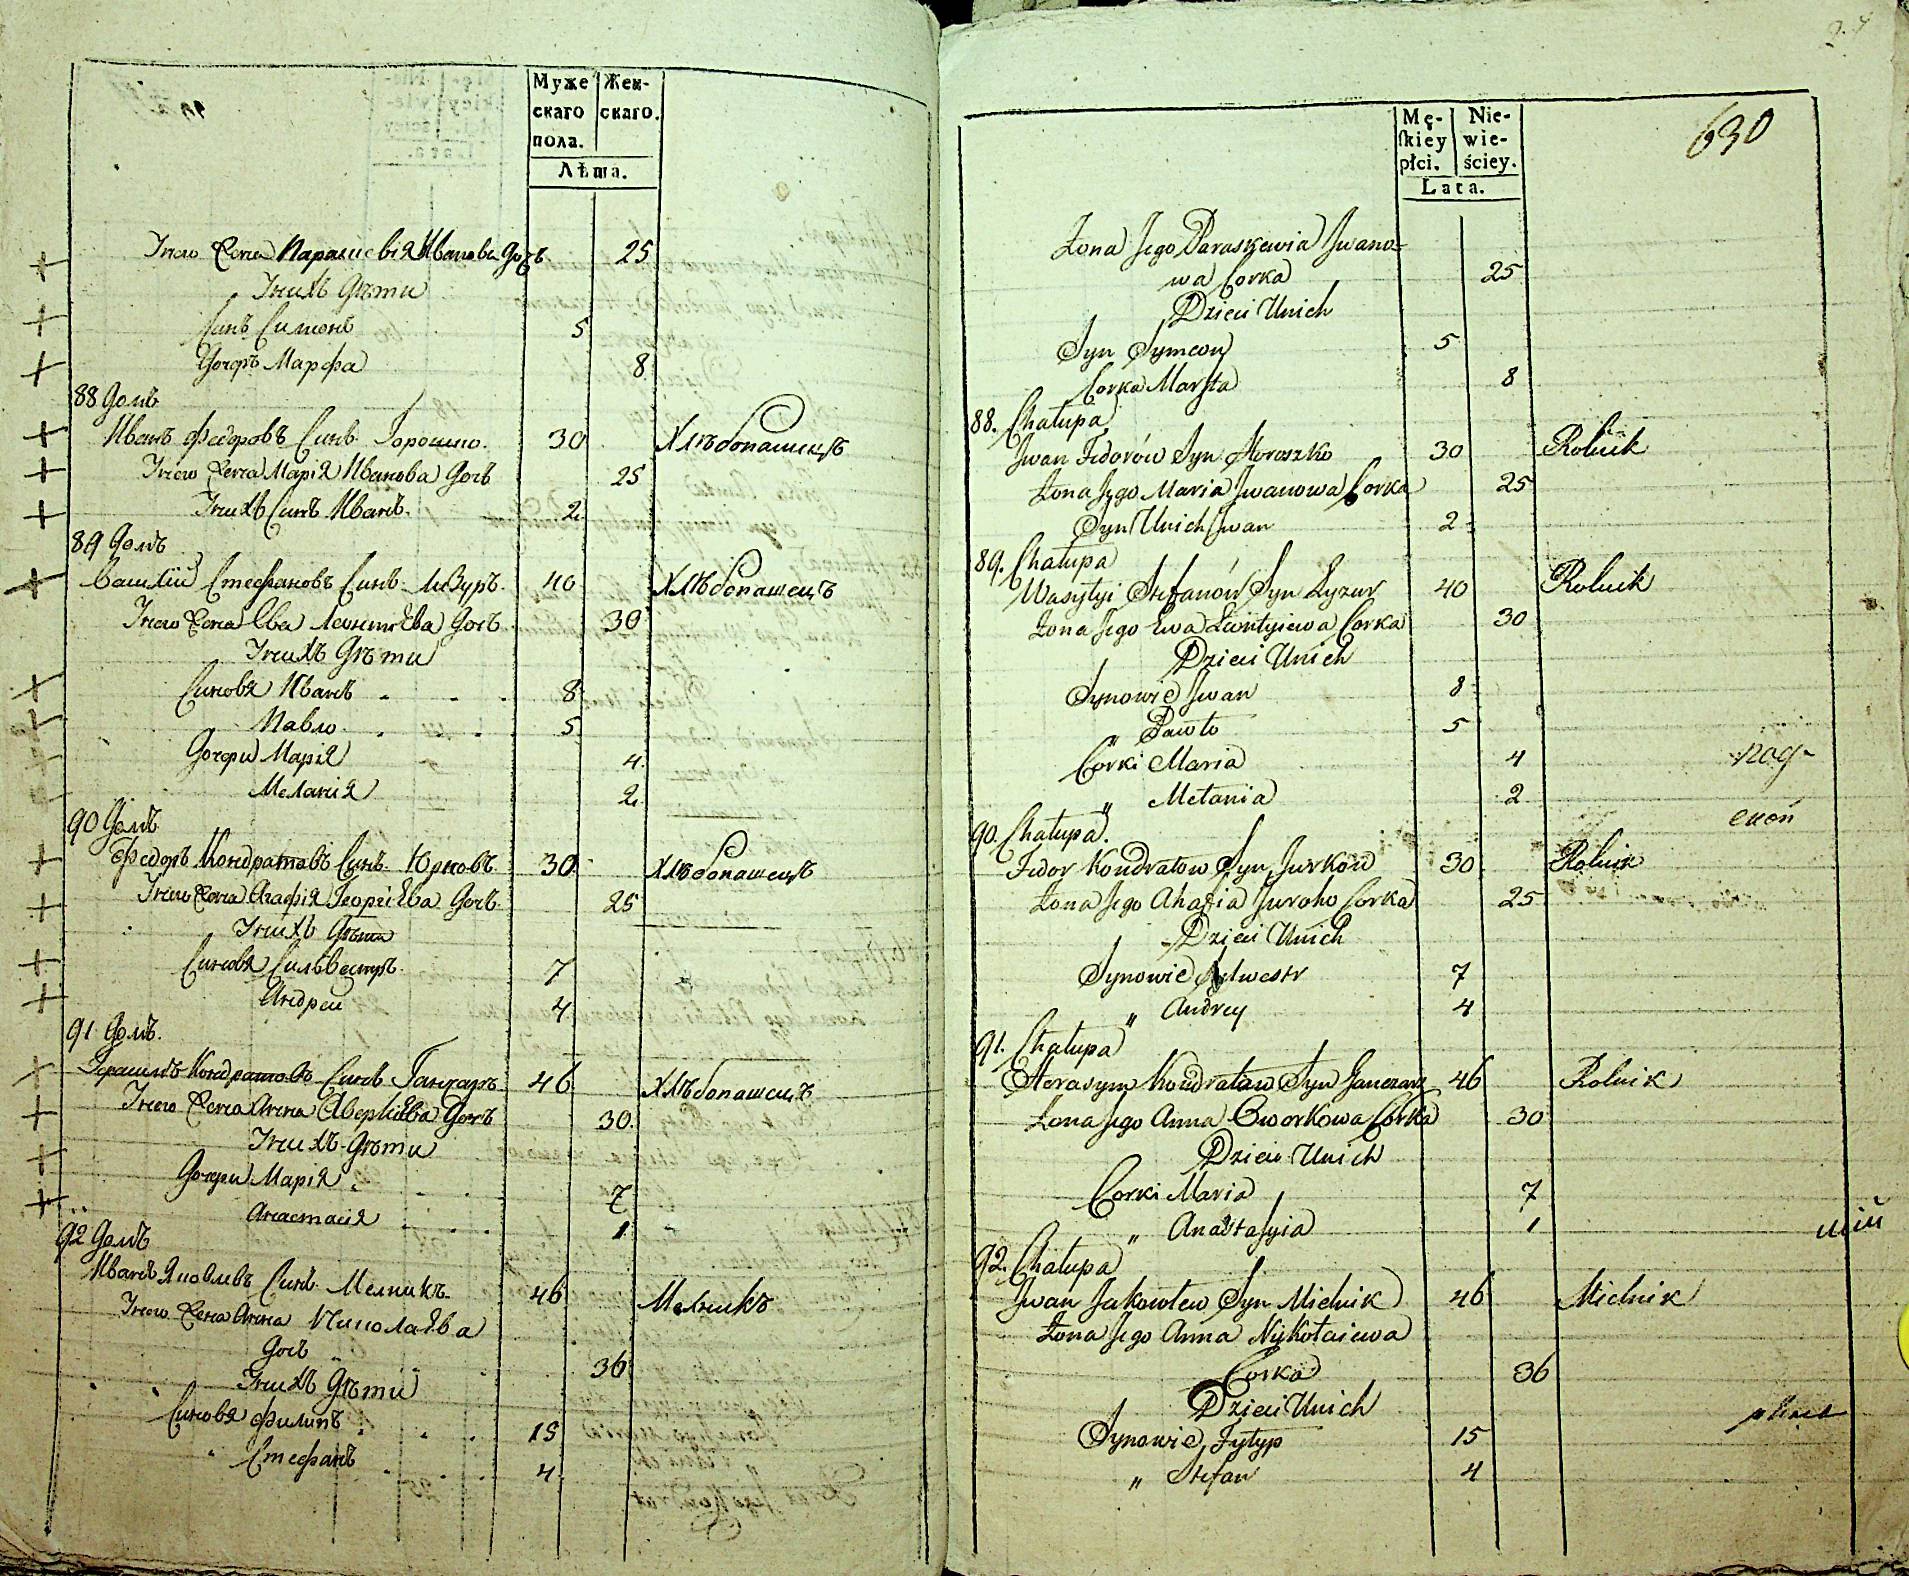 Муже Жен-
скаго скаго.
пола.
Лѣта.
Жена Параскевія Иванова 25
Дѣти
Синъ Симонъ 5
Дочерь Марфа 8
88 Домъ
Иванъ Федоровъ Синъ Горошко 30 Хлѣбопашецъ
Жена Марія Иванова Дочь 25
Синъ Иванъ 2
89 Домъ
Василій Стефановъ Синъ Лизуръ 40 Хлѣбопашецъ
Жена Ева Леонтіева Дочь 30
Дѣти
Синовя Иванъ 8
Павло 5
Дочери Марія 4
Меланія 2
90 Домъ
Федоръ Кондратовъ Синъ Юрковъ 30 Хлѣбопашецъ
Жена Агафія Георгіева Дочь 25
Дѣти
Синовя Сильвестръ 7
Андреи 4
91 Домъ
Герасимъ Кондратовъ Синъ Ганчаръ 46 Хлѣбопашецъ
Жена Анна Аверкіева Дочь 30
Дѣти
Дочери Марія 7
Анастасія 1
92 Домъ
Иванъ Яковлевъ Синъ Мелникъ 46 Мельникъ
Жена Анна Николаева
Дочь 36
Дѣти
Синовя Филипъ 15
" Стефанъ 4
630
Mę- Nie-
skiey wie-
płci. ściey.
Lata.
Zona Jego Paraskewia Jwano-
wa Corka 25
Dzieci Unich
Syn Symeon 5
Corka Marfta 8
88. Chałupa
Jwan Fedorów Syn Horoszko 30 Rolnik
Zona Jego Maria Jwanowa Corka 25
Syn Unich Jwan 2
89. Chałupa
Wasylyi Stefanów Syn Lyzur 40 Rolnik
Zona Jego Ewa Corka 30
Dzieci Unich
Synowie Jwan 8
" Pawło 5
Corki Maria 4
" Mełania 2
90. Chałupa
Fedor Kondratow Syn Jurkow 30 Rolnik
Zona Jego Ahafia Juroho Corka 25
Dzieci Unich
Synowie Sylwestr 7
" Andrey 4
91. Chałupa
Herasym Kondratow Syn Ganczarz 46 Rolnik
Zona Jego Anna Owerkowa Corka 30
Dzieci Unich
Corki Maria 7
" Anastasyia 1
92. Chałupa
Jwan Jakowlew Syn Mielnik 46 Mielnik
Zona Jego Anna Nykołaiewa
Corka 36
Dzieci Unich
Synowie Fylyp 15
" Stefan 4